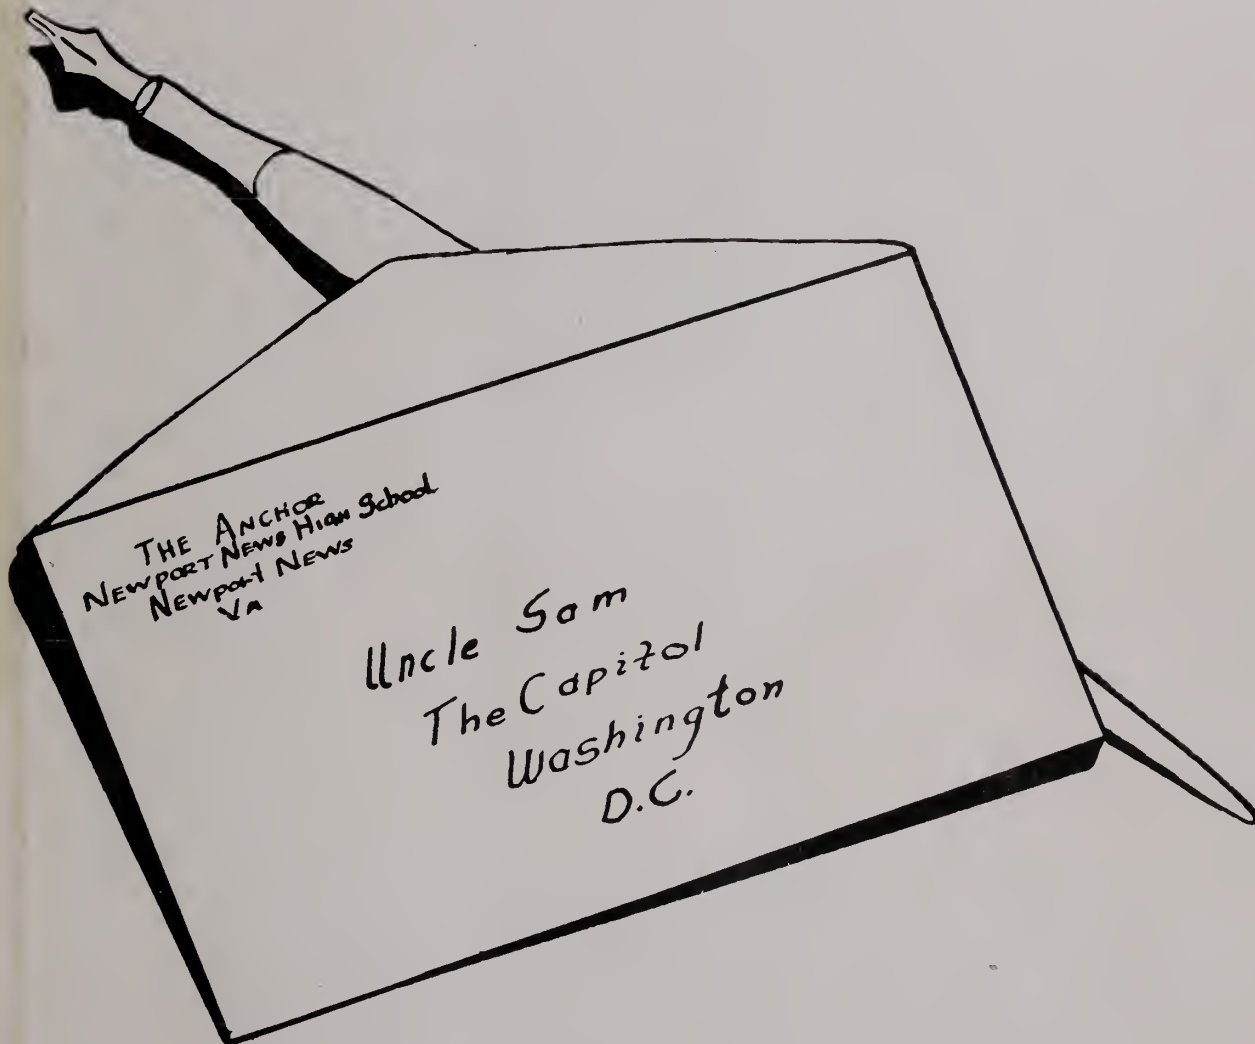 THE ANCHOR
NEWPORT NEWS HIGH School
NEWPORT NEWS
VA
Uncle Sam
The Capitol
Washington
D.C.